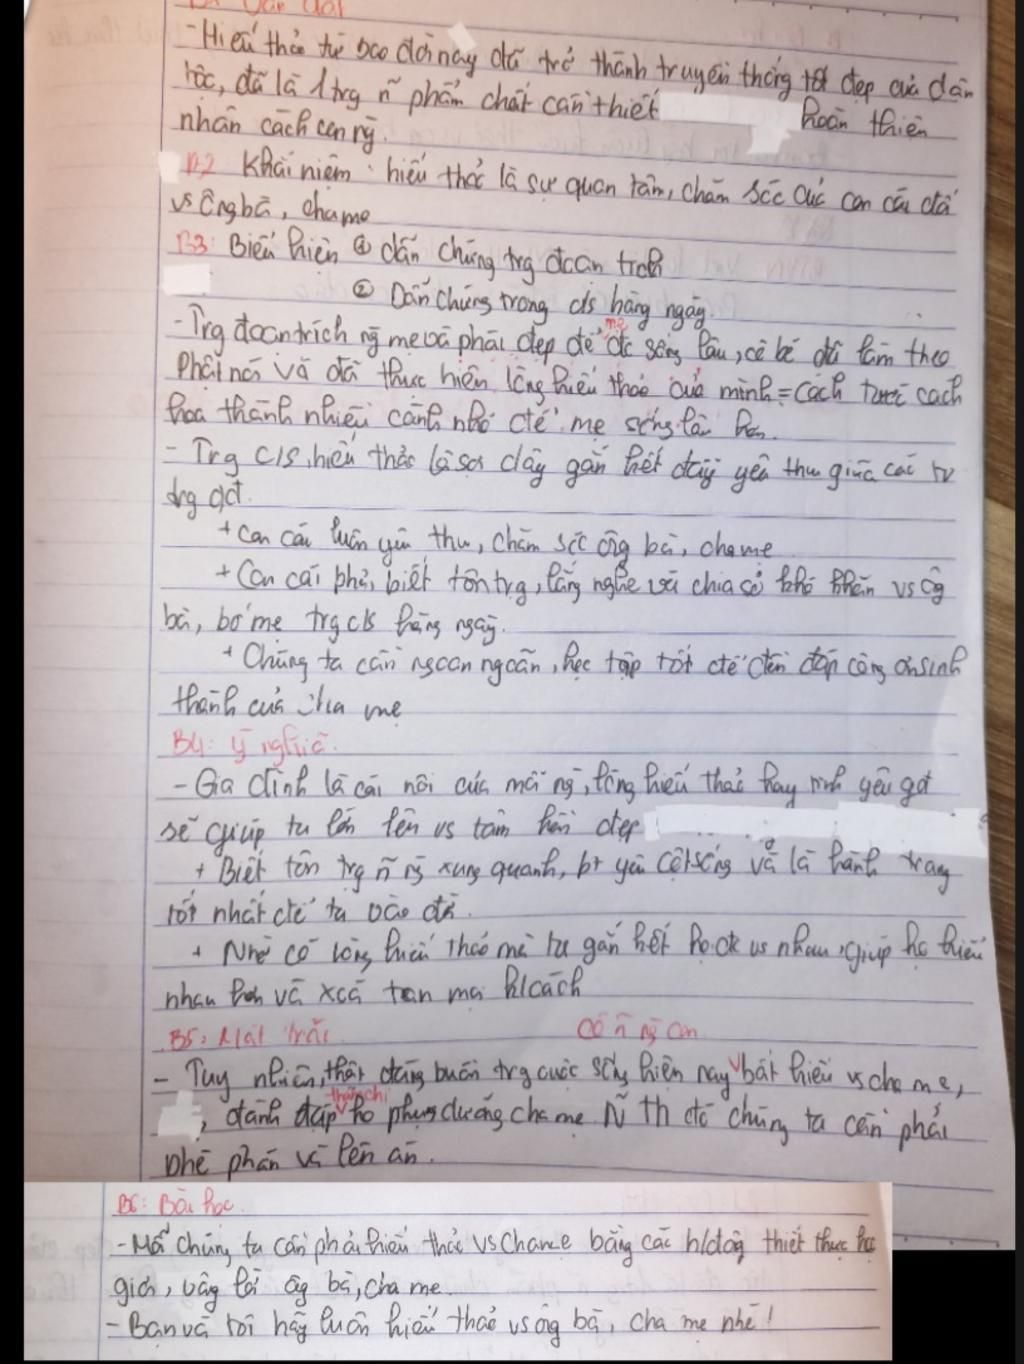 B1 Dẫn dắt
- Hiếu thảo từ bao đời nay đã trở thành truyền thống tốt đẹp của dân
tộc, đã là 1 trg ~n phẩm chất cần thiết hoàn thiện
nhân cách con ng`.
B2 Khái niệm: hiếu thảo là sự quan tâm, chăm sóc của con cái đối
vs ông bà, cha mẹ
B3: Biểu hiện ① dẫn chứng trg đoạn trích
② Dẫn chứng trong c/s hằng ngày.
- Trg đoạn trích ng` mẹ và phải đẹp để mẹ đc sống lâu, cô bé đã làm theo
Phật nói và đã thực hiện lòng hiếu thảo của mình = cách tước cách
hoa thành nhiều cánh nhỏ để mẹ sống lâu hơn.
- Trg c/s, hiếu thảo là sợi dây gắn kết đầy yêu thw giữa các tv
trg gđ.
+ Con cái luôn yêu thw, chăm sóc ông bà, cha mẹ
+ Con cái phải biết tôn trg, lắng nghe và chia sẻ khó khăn vs ôg
bà, bố mẹ trg c/s hằng ngày.
+ Chúng ta cần ngoan ngoãn, học tập tốt để đền đáp công ơn sinh
thành của cha mẹ
B4: ý nghĩa.
- Gia đình là cái nôi của mỗi ng`, lòng hiếu thảo hay tình yêu gđ
sẽ giúp ta lớn lên vs tâm hồn đẹp
+ Biết tôn trg ~n ng` xung quanh, bt yêu cuộc sống và là hành trang
tốt nhất để ta vào đời.
+ Nhờ có lòng hiếu thảo mà ta gắn kết họ đk vs nhau, giúp họ hiểu
nhau hơn và xoá tan mọi k/cách
B5: Mặt trái
- Tuy nhiên, thật đáng buồn trg cuộc sống hiện nay có ~n ng` con bất hiếu vs cha mẹ,
, đánh đập thậm chí ko phụng dưỡng cha mẹ ~N TH đó chúng ta cần phải
phê phán và lên án.
B6: Bài học.
- Mỗi chúng ta cần phải hiếu thảo vs cha mẹ bằng các h/động thiết thực học
giỏi, vâng lời ôg bà, cha mẹ.
- Bạn và tôi hãy luôn hiếu thảo vs ông bà, cha mẹ nhé!